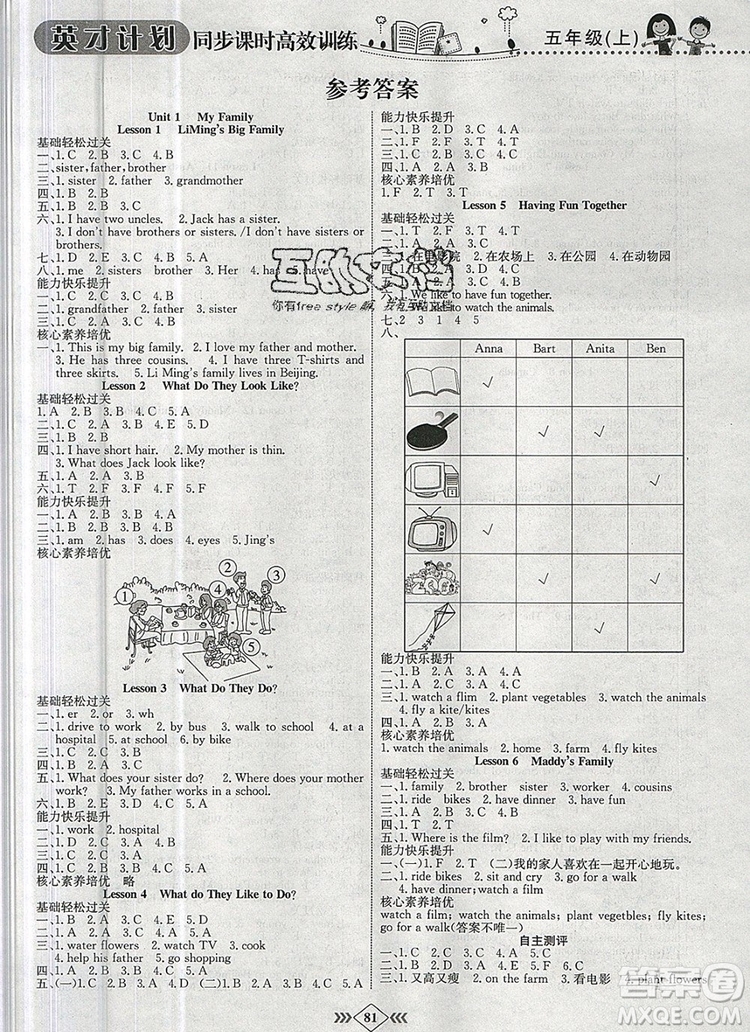 英才计划 同步课时高效训练
五年级(上)
参考答案
Unit 1 My Family
Lesson 1 LiMing's Big Family
基础轻松过关
一、1. C 2. B 3. C 4. B
二、sister, father, brother
三、1. sister 2. father 3. grandmother
四、1. B 2. B
五、1. B 2. C 3. A
六、1. I have two uncles. 2. Jack has a sister.
3. I don't have brothers or sisters. /I don't have sisters or
brothers.
七、1. D 2. C 3.
八、1. me 2. sisters brothers 3. Her 4. has
能力快乐提升
一、1. grandfather 2. father 3. sister
二、1. B 2. B 3. C
核心素养培优
一、1. This is my big family. 2. I love my father and mother.
3. He has three cousins. 4. I have three T-shirts and
three skirts. 5. Li Ming's family lives in Beijing.
Lesson 2 What Do They Look Like?
基础轻松过关
1. A 2. B 3. B 4. D
二、1. C 2. A 3. B 4. E 5. D
三、1. B 2. B 3. B
四、1. I have short hair. 2. I am thin.
3. What does Jack look like?
五、1. A 2. A 3. A
六、1. T 2. F 3. F 4. F 5. F
能力快乐提升
一、1. C 2. D 3. A 4. B
二、1. B 2. B 3. A
三、1. am 2. has 3. does 4. eyes 5. Jing's
核心素养培优
1
2
3
4
5
Lesson 3 What Do They Do?
基础轻松过关
一、1. er 2. or 3. wh
二、1. drive to work 2. by bus 3. walk to school 4. at a
hospital 5. at school 6. by bike
三、1. B 2. C 3. A 4. B
四、1. B 2. D 3. E 4. C 5. A
五、1. What does your sister do? 2. Where does your mother
work? 3. My father works in a school.
六、1. B 2. A 3. B 4. B
能力快乐提升
一、1. work 2. hospital
二、1. D 2. C 3. A 4. B
三、1. B 2. A 3. D 4. C 5. A
核心素养培优 略
Lesson 4 What do They Like to Do?
基础轻松过关
一、1. B 2. A 3. A 4. B
二、1. B 2. A 3. C 4. E 5. D
三、1. water flowers 2. watch TV 3. cook
4. help his father 5. go shopping
四、1. A 2. B 3. A 4. B
五、(一)1. C 2. B 3. D 4. A (二)1. B 2. C 3. A
能力快乐提升
一、1. B 2. D 3. C 4. A
二、1. C 2. A 3. B
三、1. A 2. A 3. B
核心素养培优
1. F 2. T 3. T
Lesson 5 Having Fun Together
基础轻松过关
一、1. T 2. T
二、1. F 2. T 3. F
三、1. 在电影院 2. 在农场上 3. 在公园 4. 在动物园
六、1. We like to have fun together.
2. We like to watch the animals.
七、2 3 1 4 5
八、
Anna Bart Anita Ben
能力快乐提升
一、1. D 2. C 3. B 4. A
二、1. A 2. B 3. A
三、1. watch a flim 2. plant vegetables 3. watch the animals
4. fly a kite/kites
核心素养培优
1. watch the animals 2. home 3. farm 4. fly kites
Lesson 6 Maddy's Family
基础轻松过关
一、1. family 2. brother sister 3. worker 4. cousins
二、1. ride bikes 2. have dinner 3. have fun
三、1. B 2. A 3. B 4. B
四、1. T 2. T
五、1. Where is the film? 2. I like to play with my friends.
能力快乐提升
一、(一)1. F 2. T (二)我的家人喜欢在一起开心地玩。
二、1. ride bikes 2. sit and cry 3. go for a walk
4. have dinner(dinners)
核心素养培优
watch a film; watch the animals; plant vegetbles; fly kites;
go for a walk(答案不唯一)
自主测评
一、1. C 2. C 3. B 4. B 5. A
二、1. 又高又瘦 2. on a farm 3. 看电影 4. plant flowers
互助文档
你有free style 颜, 我有互助文档
答案圈
MXQE.COM
81